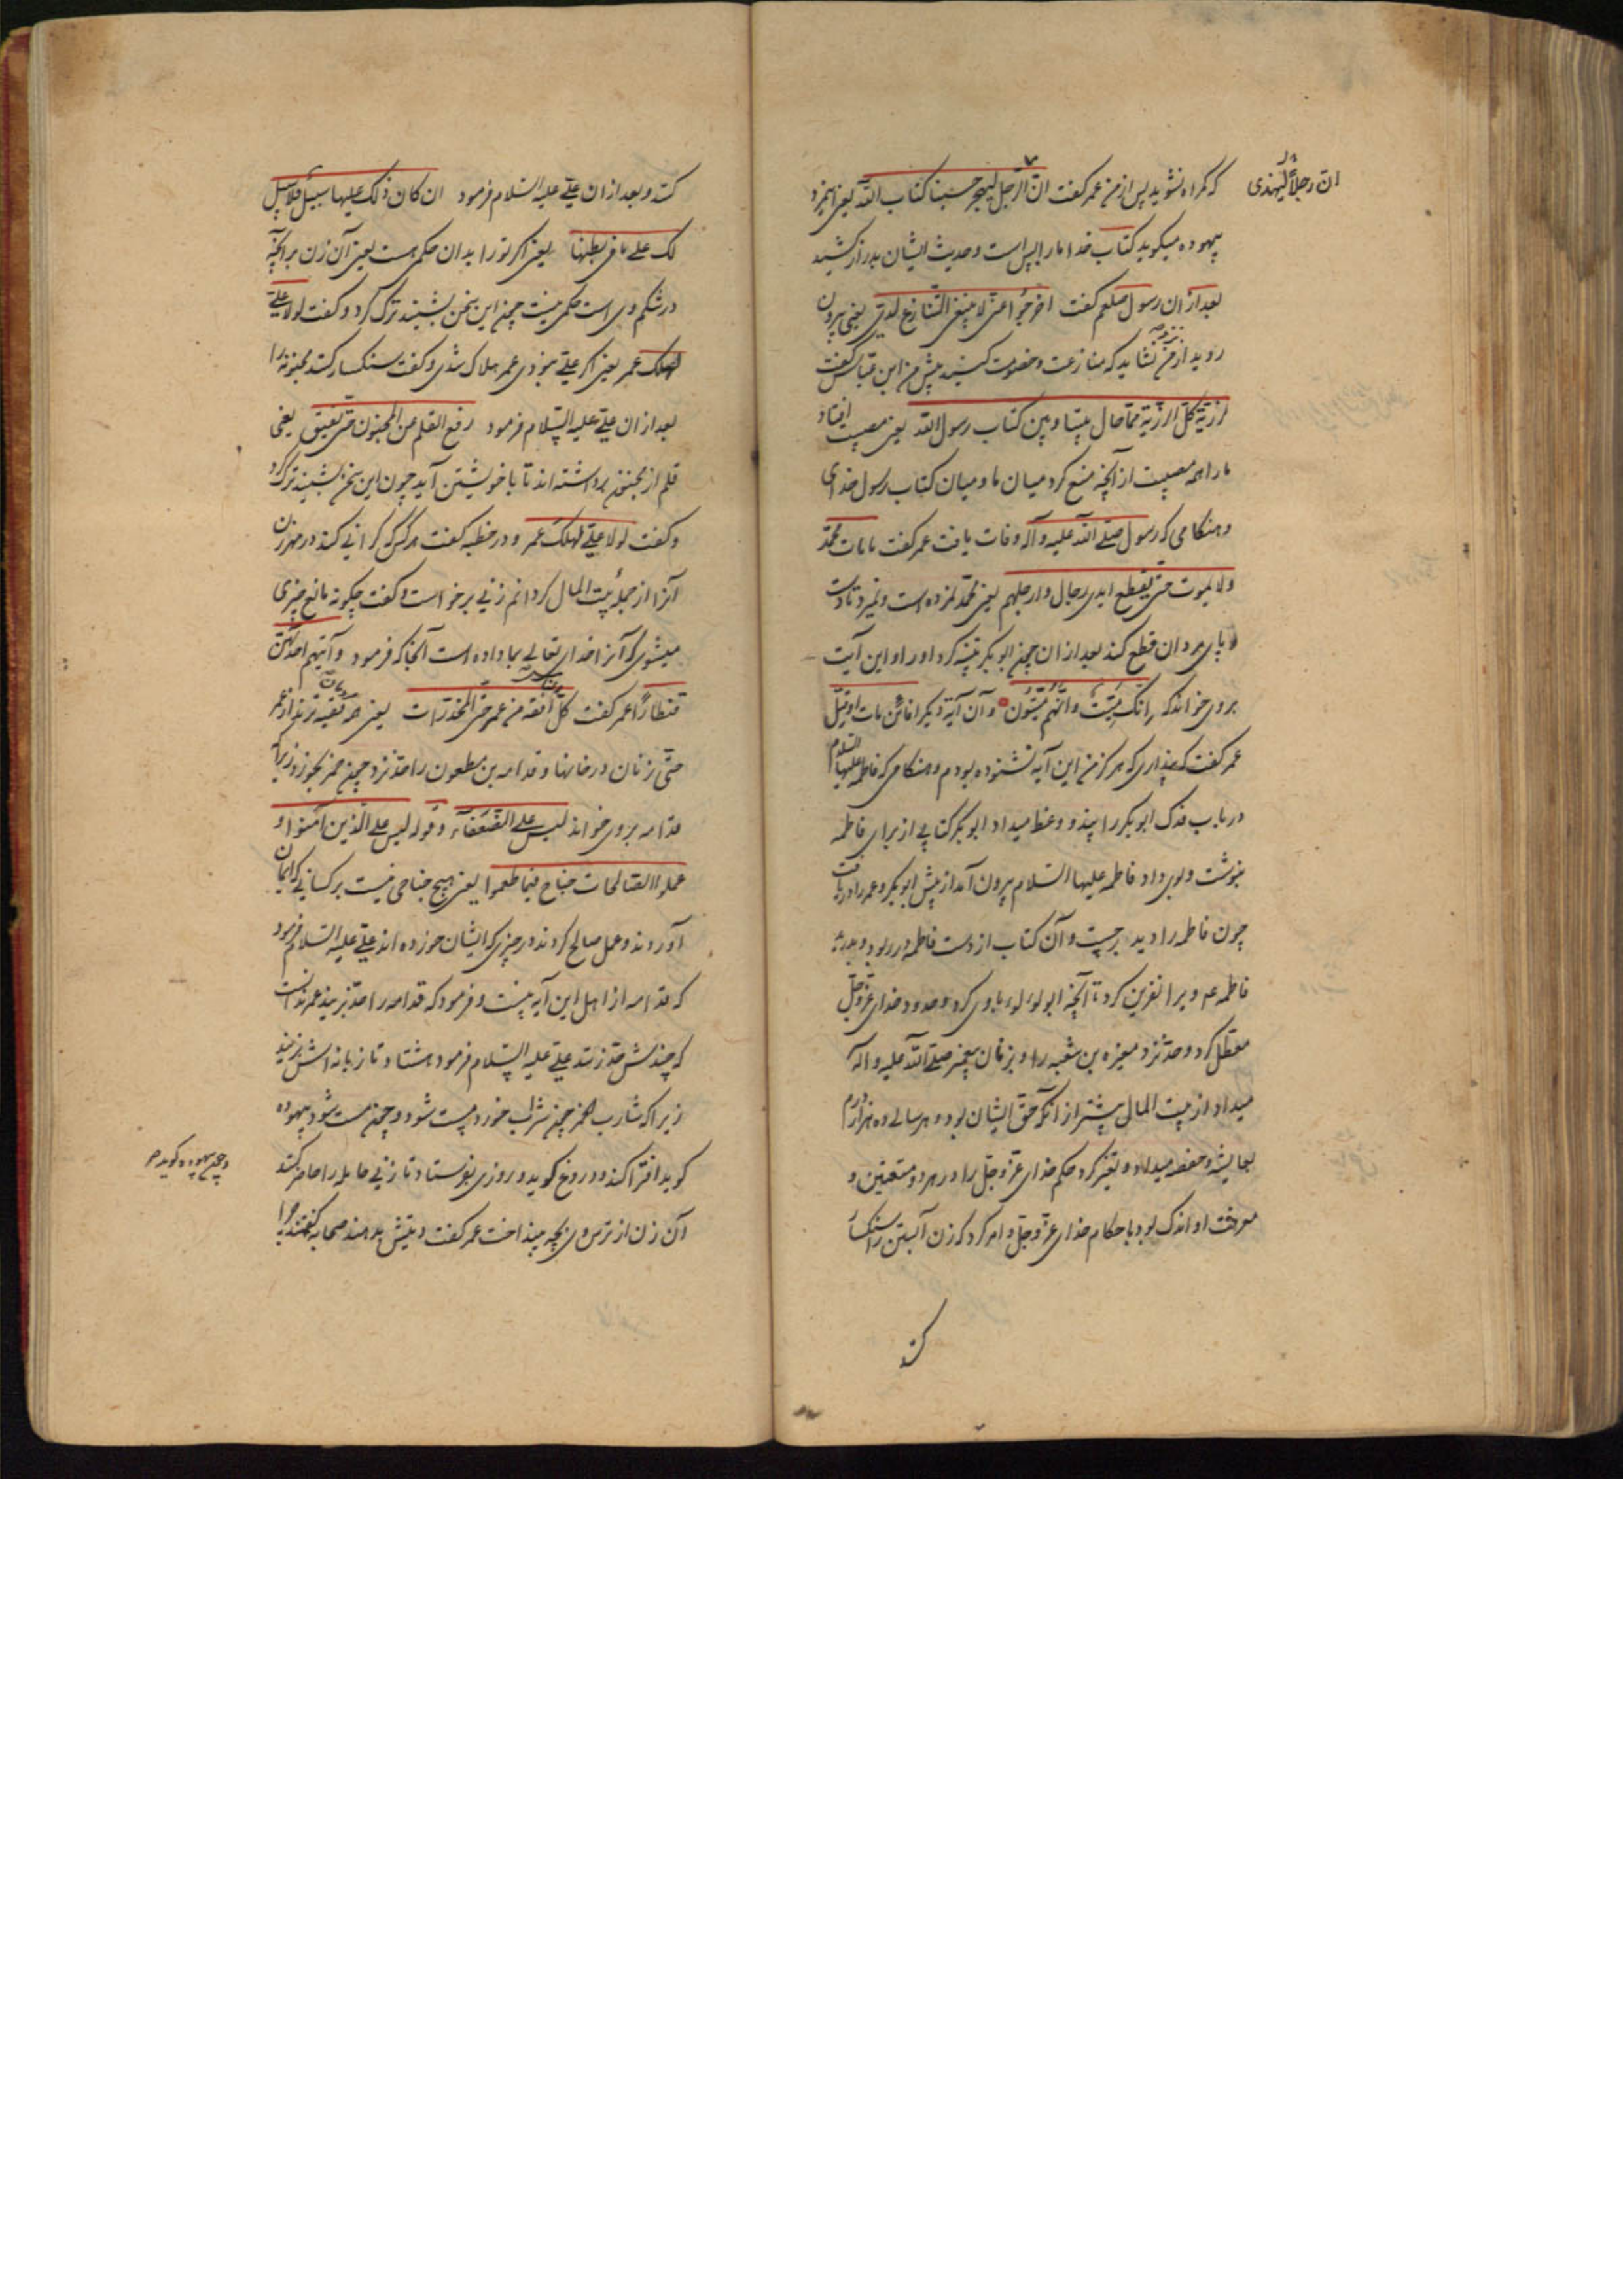 ان رجلاً لیهذی
که گمراه نشوید پس از من عمر گفت انّ الرّجل لیهجر حسبنا کتاب الله یعنی این مرد
بیهوده میگوید کتاب خدا ما را بس است و حدیث ایشان بدراز کشید
بعد از ان رسول صلعم گفت اخرجوا عنّی لا ینبغی التّنازع لدیّ یعنی بیرون
روید از من نشاید که منازعت و خصومت کنید پیش من ابن عبّاس گفت
لرزیّة کلّ الرّزیّة ممّا حال بیننا و بین کتاب رسول الله یعنی مصیبت افتاد
ما را همه مصیبت از آنچه منع کرد میان ما و میان کتاب رسول خدای
و هنگامی که رسول صلّی الله علیه و آله وفات یافت عمر گفت ما مات محمّد
ولا یموت حتّی یقطع ایدی رجال و ارجلهم یعنی محمّد نمرده است و نمیرد تا دست
و پای مردان قطع کند بعد از ان چون ابوبکر تنبیه کرد او را و این آیت
بروی خواند که انّک میّت و انّهم میّتون و آن آیة دیگر افائن مات او قتل
عمر گفت که پنداری که هرگز من این آیه نشنوده بودم و هنگامی که فاطمه علیها السلام
در باب فدک ابوبکر را پند و وعظ میداد ابوبکر کتابی از برای فاطمه
بنوشت و بوی داد فاطمه علیها السّلام بیرون آمد از پیش ابوبکر و عمر را دریافت
چون فاطمه را دید برجست و آن کتاب از دست فاطمه در ربود و بدرید
فاطمه عم ویرا نفرین کرد تا آنچه ابولؤلوء با وی کرد و حدود خدای عزّ و جلّ
معطّل کرد و حد نزد مغیره بن شعبه را و بزنان پیغمبر صلّی الله علیه و آله
میداد از بیت المال بیشتر از آنکه حقّ ایشان بود و هر سالی ده هزار درم
بعایشه و حفصه میداد و تغییر کرد حکم خدای عزّ و جلّ را در هر دو متعتین و
معرفت او اندک بود باحکام خدای عزّ و جلّ و امر کرد که زن آبستن را سنکسار
کند
کنند و بعد از ان علی علیه السّلام فرمود ان کان ذلک علیها سبیل فلا سبیل
لک علی ما فی بطنها یعنی اگر تو را بدان حکمی هست یعنی آن زن بر آنچه
در شکم وی است حکمی نیست چون این سخن بشنید ترک کرد و گفت لولا علی
لهلک عمر یعنی اگر علی نبودی عمر هلاک شدی و گفت سنکسار کنند مجنونه را
بعد از ان علی علیه السّلام فرمود رفع القلم عن المجنون حتّی یفیق یعنی
قلم از مجنون برداشته اند تا با خویشتن آید چون این سخن بشنید ترک کرد
و گفت لولا علی لهلک عمر و در خطبه گفت هر کس که گرانی کند در مهر زن
آنرا از جمله بیت المال گردانم زنی برخواست و گفت چگونه مانع چیزی
میشوی که آنرا خدای تعالی بما داده است آنجا که فرمود و آتیتم احدیهنّ
قنطاراً عمر گفت کلّ افقه من عمر حتّی المخدّرات یعنی همه فقیه ترند از عمر
حتّی زنان در خانها و قدامه بن مظعون را حد نزد چون خمر بخورد زیرا که
قدامه بروی خواند لیس علی الضّعفاء و قوله لیس علی الّذین آمنوا و
عملوا الصّالحات جناح فیما طعموا یعنی هیچ جناحی نیست بر کسانی که ایمان
آوردند و عمل صالح کردند در چیزی که ایشان خورده اند علی علیه السّلام فرمود
که قدامه از اهل این آیه نیست و فرمود که قدامه را حد بزنید عمر ندانست
که چندش حد زنند علی علیه السّلام فرمود هشتاد تازیانه اش بزنید
زیرا که شارب الخمر چون شراب خورد مست شود و چون مست شود بیهوده
و چون بیهوده گوید
گوید افترا کند و دروغ گوید و روزی بفرستاد تا زنی حامله را حاضر کنند
آن زن از ترس وی بچه بینداخت عمر گفت دیتش بدهند صحابه گفتند چرا